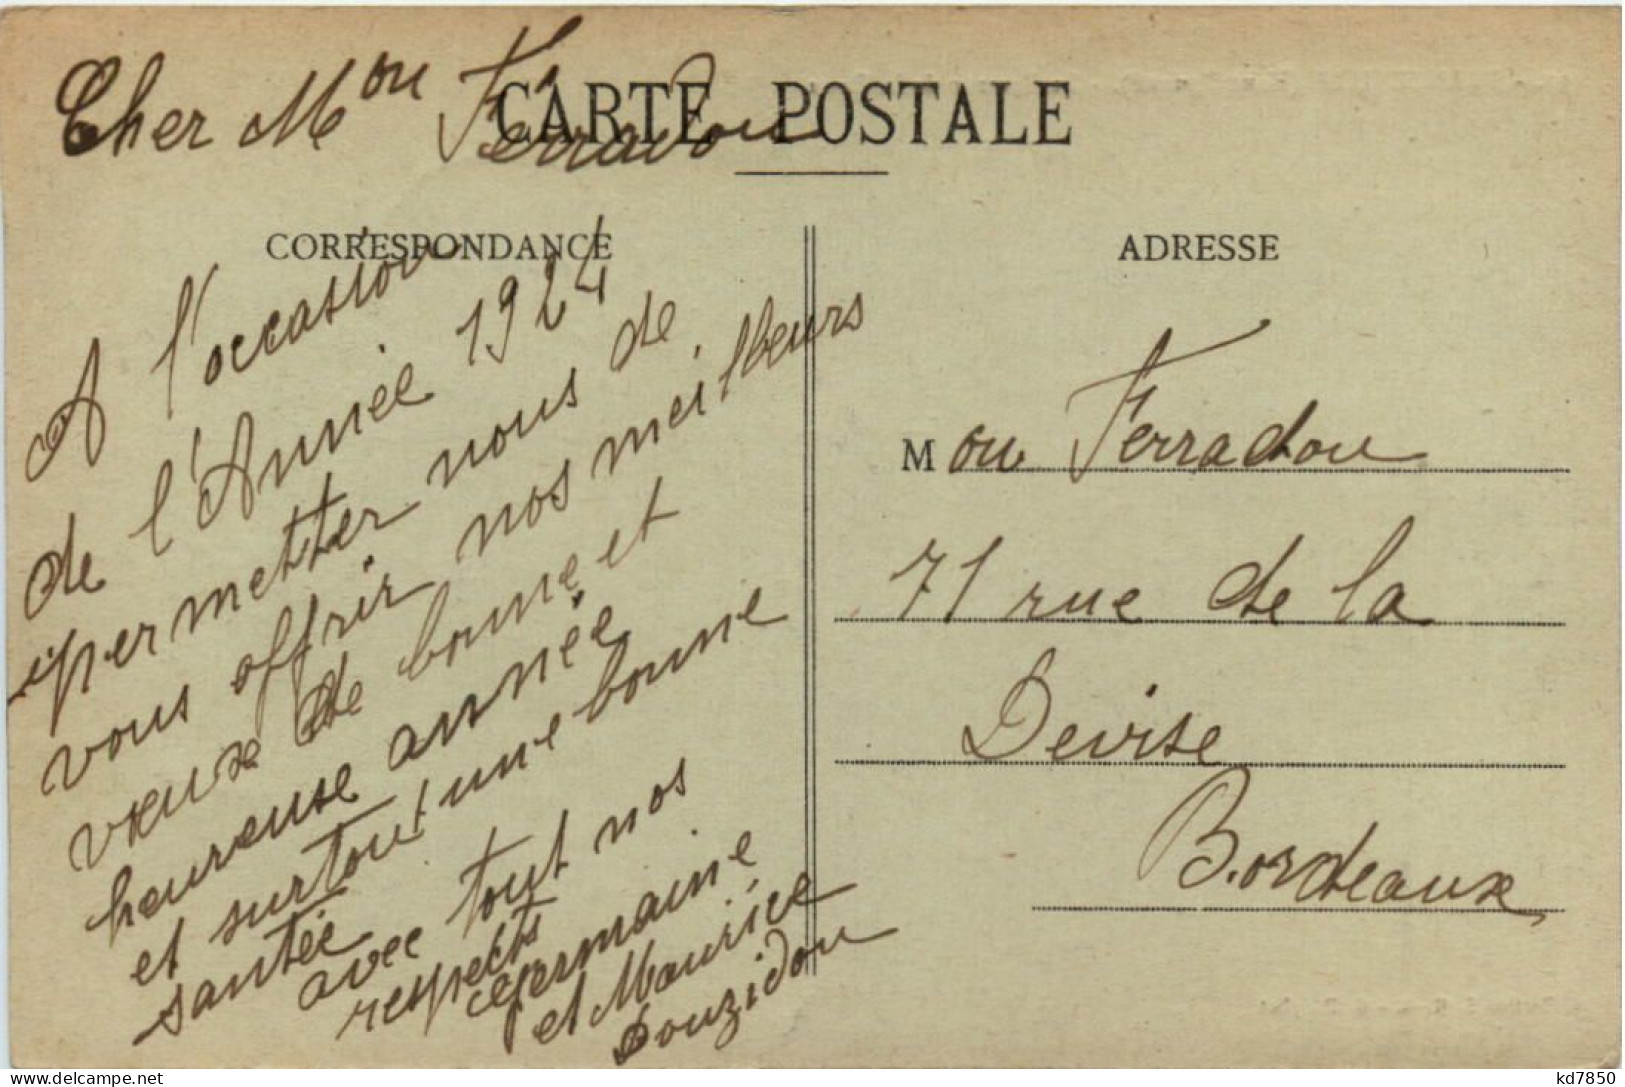 Cher Mon Ferradou
CARTE POSTALE
CORRESPONDANCE
A l'occasion
de l'Année 1924
permetter nous de
vous offrir nos meilleurs
vieux de bonne et
heureuse année
et surtout une bonne
santée
avec tout nos
respects
Germaine
et Maurice
Douzidou
ADRESSE
Mon Ferradou
71 rue de la
Devise
Bordeaux
delcampe.net
kd7850